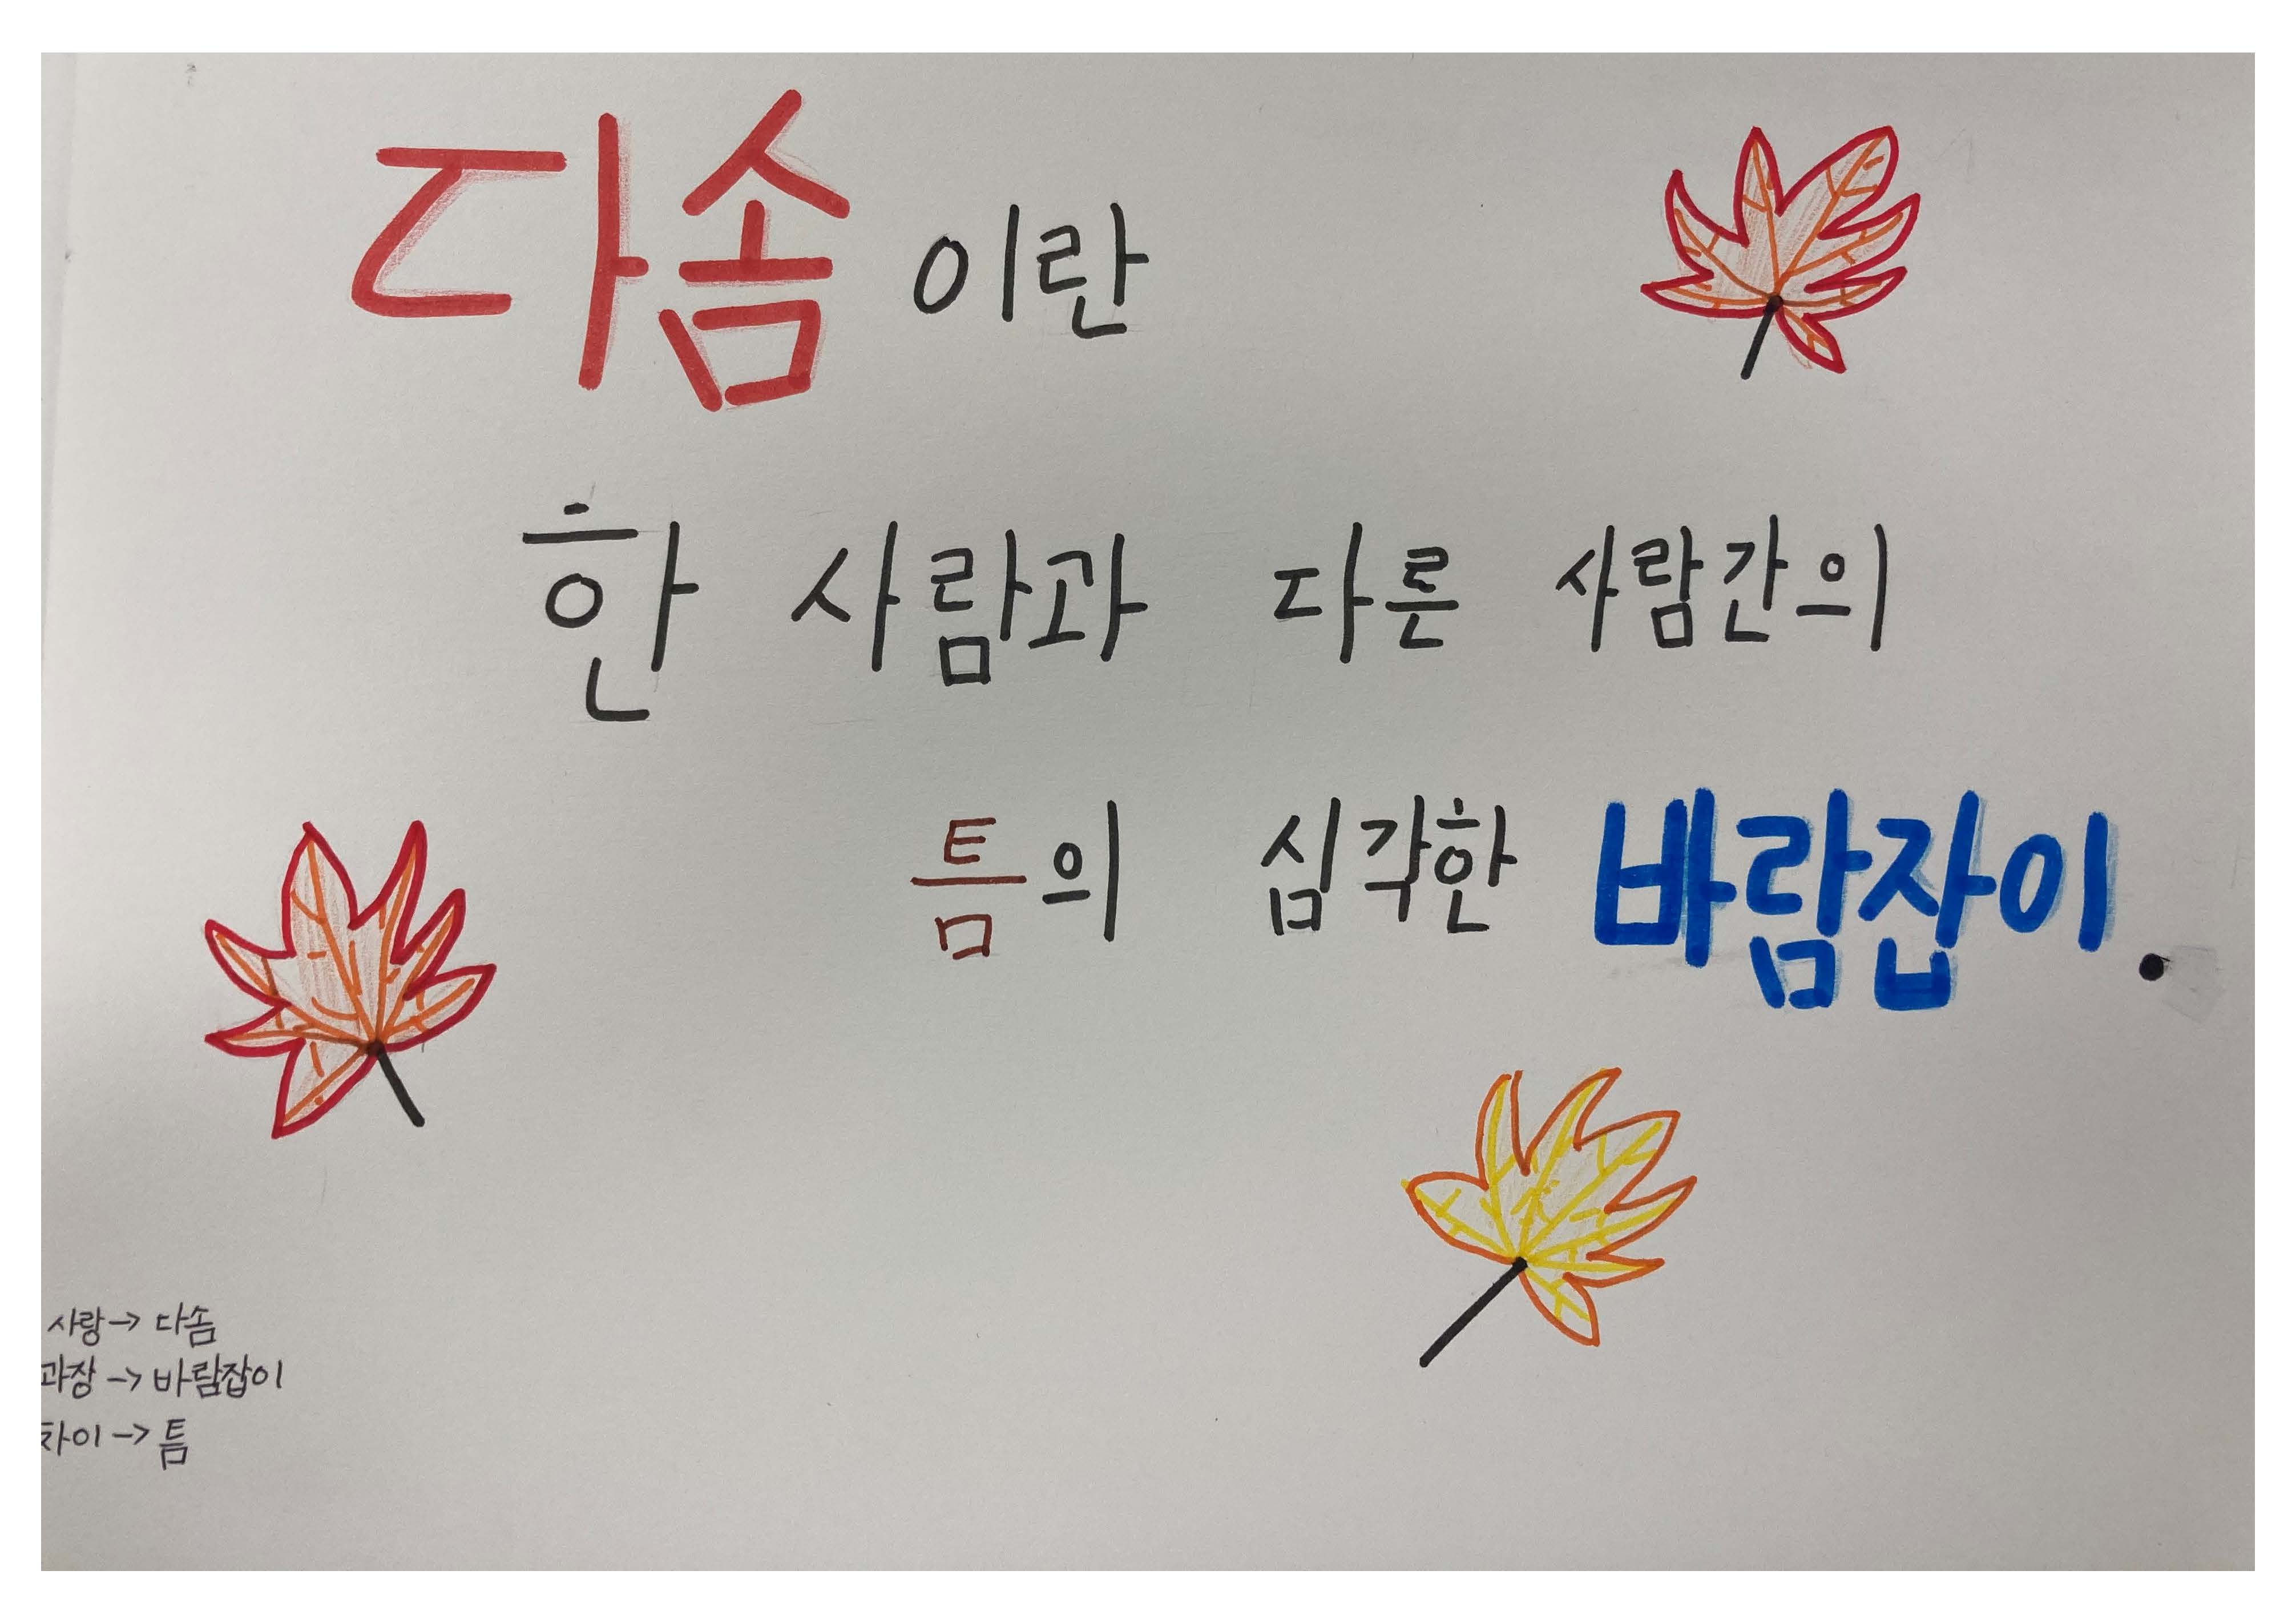 다솜이란
한 사람과 다른 사람간의
틈의 심각한 바람잡이.
사랑→ 다솜
과장 → 바람잡이
차이 → 틈